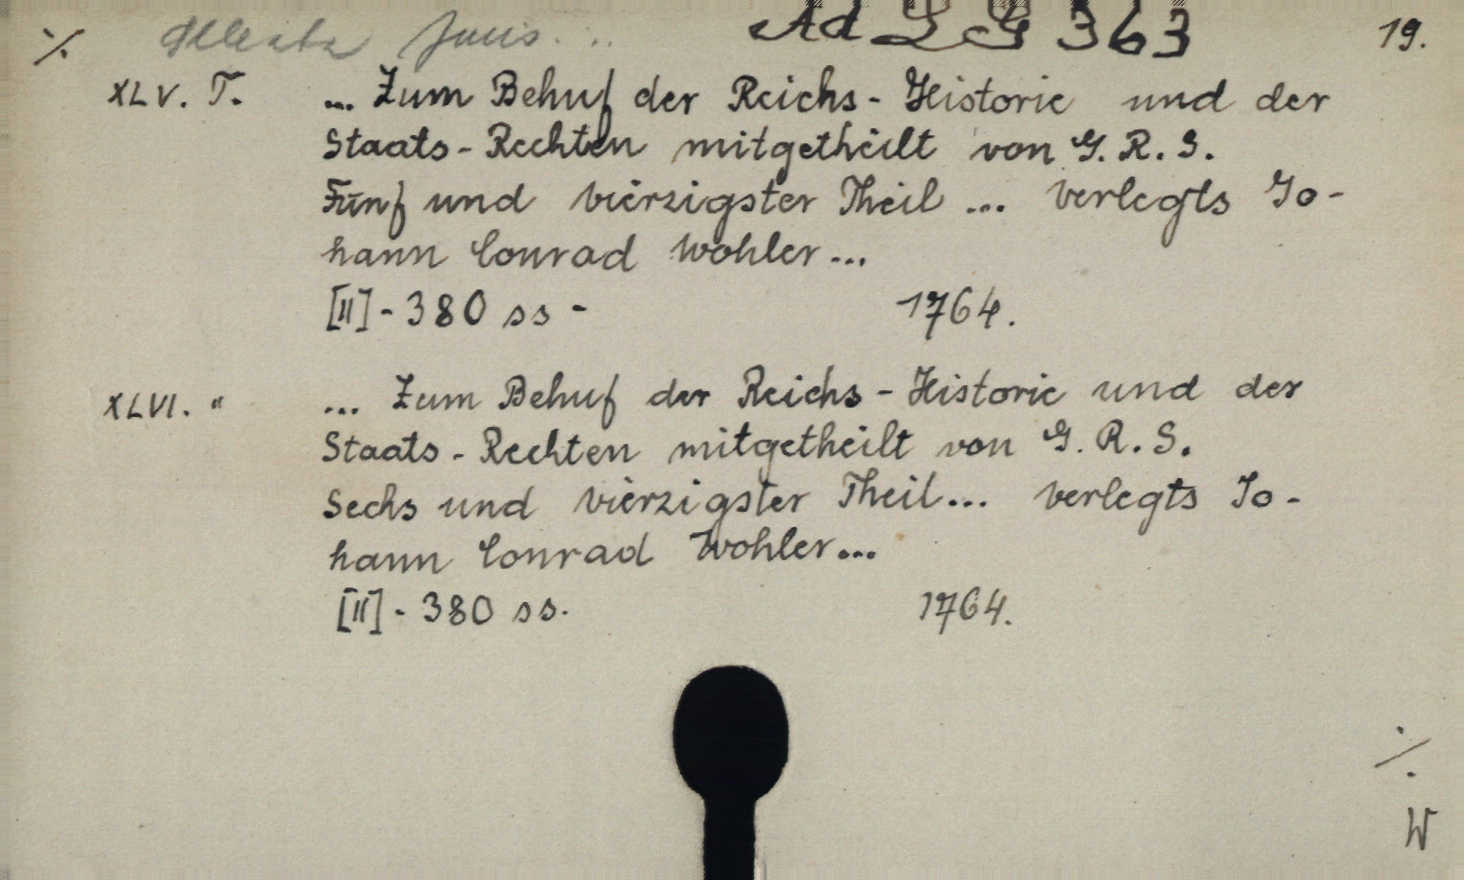 ./. Selecta Juris ... Ad LG 363 19.
XLV. T. ... Zum Behuf der Reichs-Historie und der
Staats-Rechten mitgetheilt von G. R. S.
Fünf und vierzigster Theil ... verlegts Jo-
hann Conrad Wohler ...
[II] - 380 ss - 1764.
XLVI. " ... Zum Behuf der Reichs-Historie und der
Staats-Rechten mitgetheilt von G. R. S.
Sechs und vierzigster Theil ... verlegts Jo-
hann Conrad Wohler ...
[II] - 380 ss. 1764.
./.
W